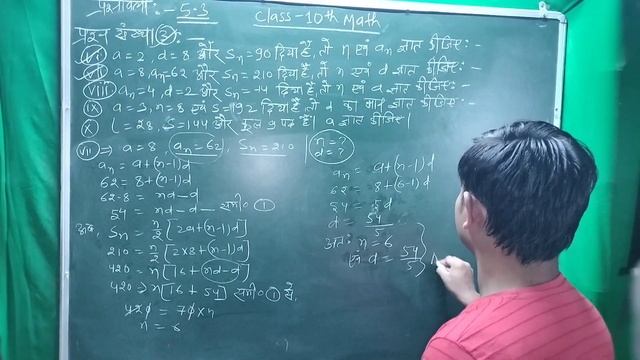 प्रश्नावली :- 5.3
Class-10th Math
प्रश्न संख्या ③ :-
(vi) a=2, d=8 और Sn=90 दिया है, तो n एवं an ज्ञात कीजिए :-
(vii) a=8, an=62 और Sn=210 दिया है, तो n एवं d ज्ञात कीजिए :-
(viii) an=4, d=2 और Sn=-14 दिया है, तो n एवं a ज्ञात कीजिए :-
(ix) a=3, n=8 एवं S=192 दिया है, तो d का मान ज्ञात कीजिए :-
(x) l=28, S=144 और कुल 9 पद हैं। a ज्ञात कीजिए।
(vii) ⇒ a=8, an=62, Sn=210
an = a+(n-1)d
62 = 8+(n-1)d
62-8 = nd-d
54 = nd-d — समी० ①
अब, Sn = n/2[2a+(n-1)d]
210 = n/2[2×8+(n-1)d]
420 = n[16+(nd-d)]
420 = n[16+54] समी० ① से,
420 = 70×n
n = 6
n=?
d=?
an = a+(n-1)d
62 = 8+(6-1)d
54 = 5d
d = 54/5
अतः n = 6
एवं d = 54/5